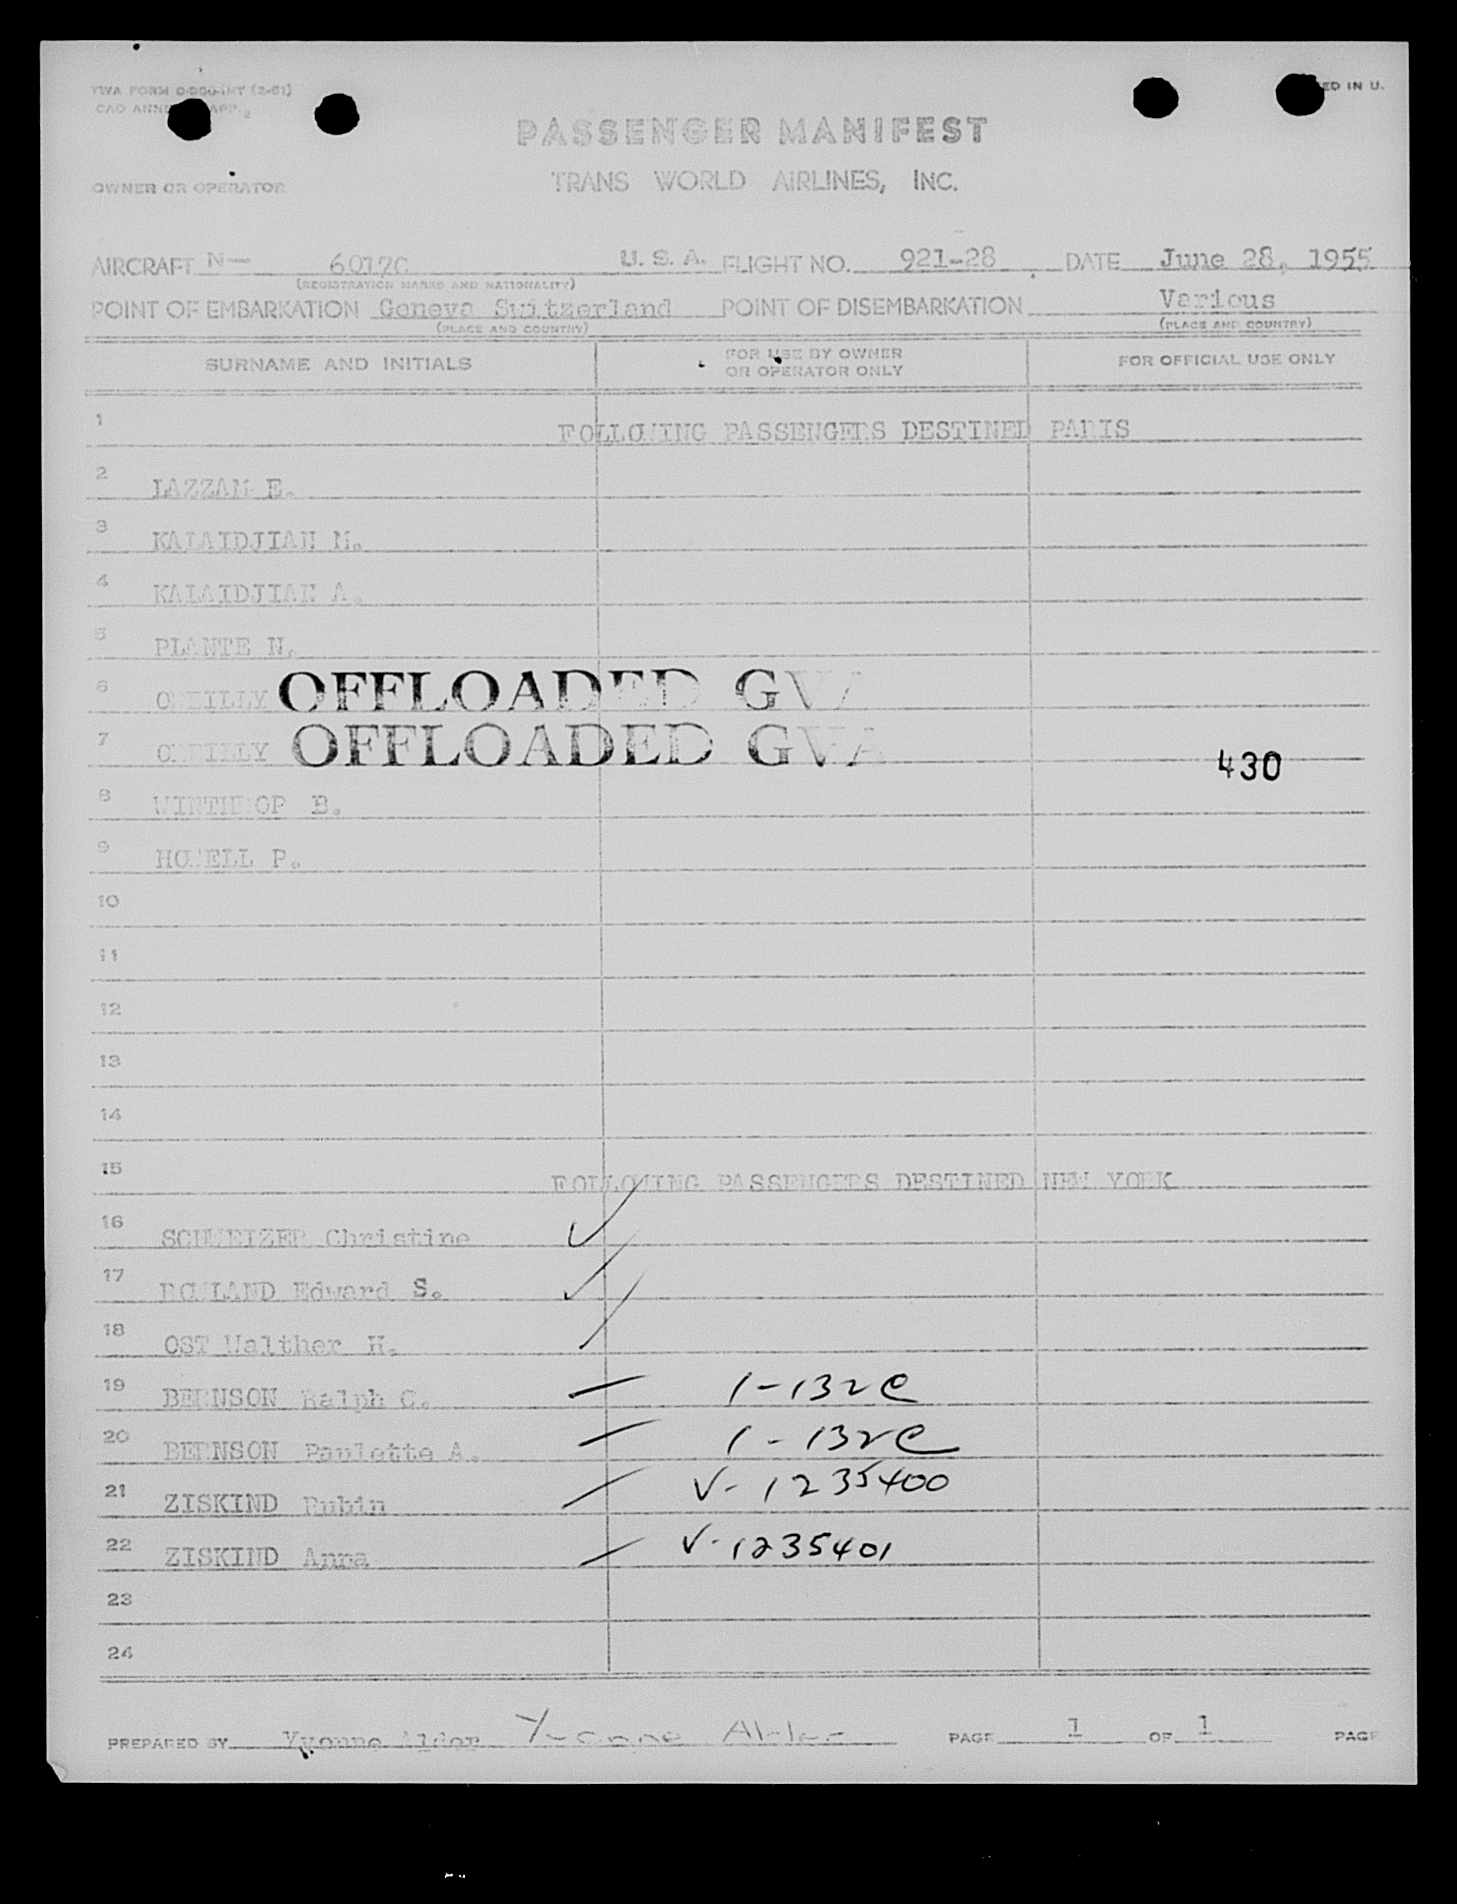 TWA FORM
PRINTED IN U.
PASSENGER MANIFEST
OWNER OR OPERATOR
TRANS WORLD AIRLINES, INC.
AIRCRAFT N— 6017C U. S. A. FLIGHT NO. 921-28 DATE June 28, 1955
(REGISTRATION MARKS AND NATIONALITY)
POINT OF EMBARKATION Geneva Switzerland POINT OF DISEMBARKATION Various
(PLACE AND COUNTRY) (PLACE AND COUNTRY)
SURNAME AND INITIALS FOR USE BY OWNER OR OPERATOR ONLY FOR OFFICIAL USE ONLY
1 FOLLOWING PASSENGERS DESTINED PARIS
2 LAZZAM E.
3 KALAIDJIAN M.
4 KALAIDJIAN A.
5 PLANTE N.
6 OREILLY OFFLOADED GVA
7 OREILLY OFFLOADED GVA 430
8 WINTHROP B.
9 HOWELL P.
10
11
12
13
14
15 FOLLOWING PASSENGERS DESTINED NEW YORK
16 SCHWEIZER Christine
17 ROWLAND Edward S.
18 OST Walther H.
19 BERNSON Ralph C. 1-132C
20 BERNSON Paulette A. 1-132C
21 ZISKIND Rubin V-1235400
22 ZISKIND Anna V-1235401
23
24
PREPARED BY Yvonne Alder Yvonne Alder PAGE 1 OF 1 PAGE